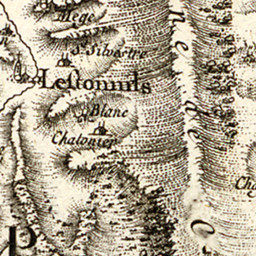 Mege
S. Silvestre
Lestonnils
Blanc
Chalonier
Cha
P